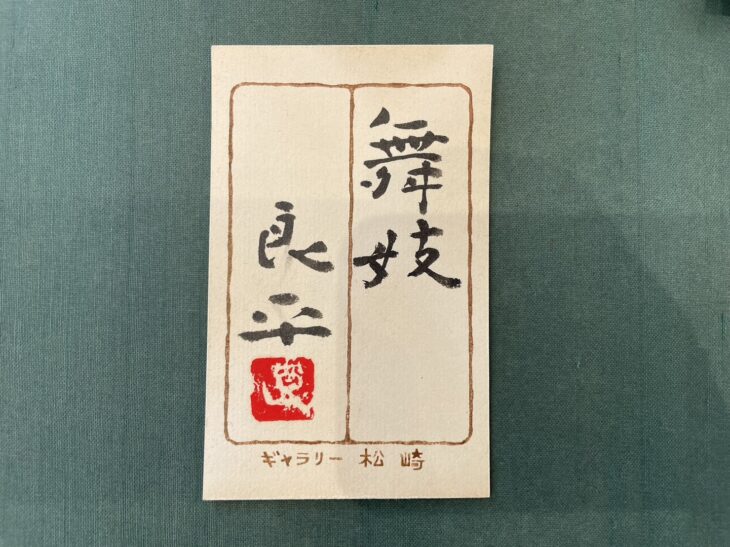 舞妓
良平
ギャラリー 松崎